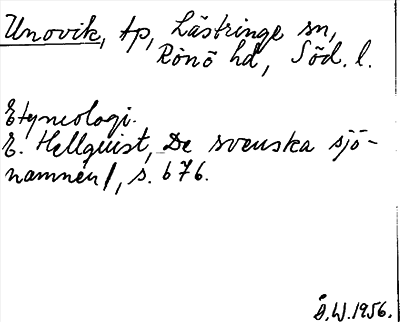 Unovik, tp, Lästringe sn,
Rönö hd, Söd. l.
Etymologi.
E. Hellquist, De svenska sjö-
namnen 1, s. 676.
Å.W.1956.